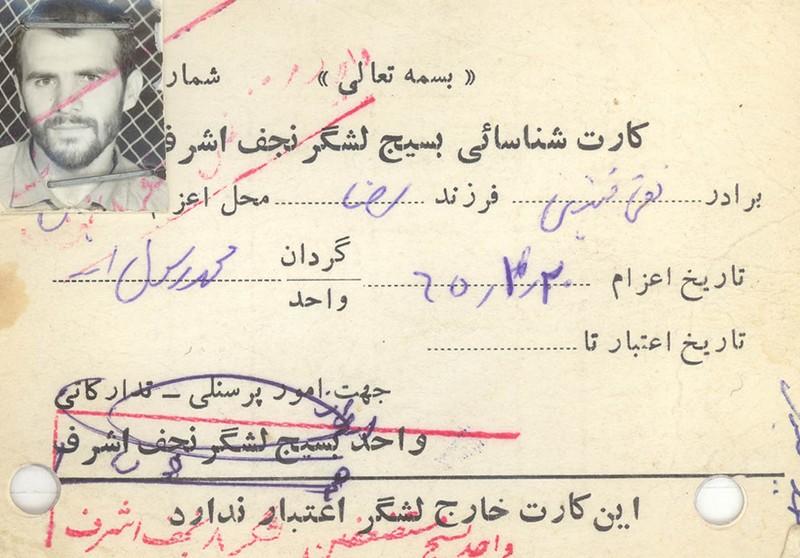 « بسمه تعالی » شمار
کارت شناسائی بسیج لشگر نجف اشرف
برادر ........ فرزند رضا محل اعزام
تاریخ اعزام ........ گردان محمد رسول ا...
واحد
تاریخ اعتبار تا ........
جهت امور پرسنلی ــ تدارکاتی
واحد بسیج لشگر نجف اشرف
این کارت خارج لشگر اعتبار ندارد
واحد بسیج مستضعفین لشگر ۸ نجف اشرف